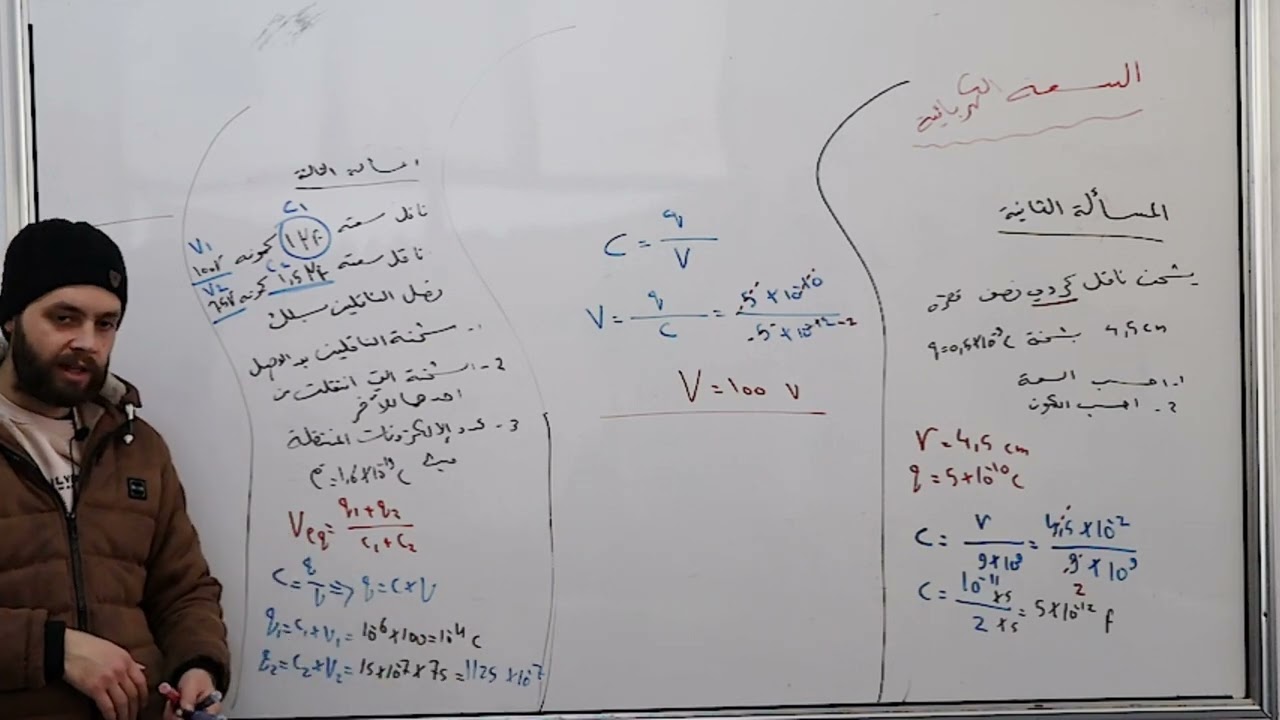 السعة الكهربائية
المسألة الثانية
يشحن ناقل كروي نصف قطره
4,5 cm بشحنة q=0,5×10⁻⁹C
1- احسب السعة
2- احسب الكمون
r = 4,5 cm
q = 5×10⁻¹⁰ C
C = r / 9×10⁹ = 4,5×10⁻² / 9×10⁹
C = 10⁻¹¹ ×5 / 2 ×5 = 5×10⁻¹² f
C = q / V
V = q / C = 5×10⁻¹⁰ / 5×10⁻¹²
V = 100 v
ناقل سعته 1μF كمونه 100V
C1 V1
ناقل سعته 1,5μF كمونه 75V
C2 V2
نصل الناقلين بسلك
1- شحنة الناقلين بعد الوصل
2- الشحنة التي انتقلت من
احدهما للآخر
3- عدد الإلكترونات المنتقلة
e = 1,6×10⁻¹⁹ C
Veq = q1+q2 / C1+C2
C = q / V => q = C×V
q1 = C1×V1 = 10⁻⁶×100 = 10⁻⁴ C
q2 = C2×V2 = 15×10⁻⁷×75 = 1125×10⁻⁷